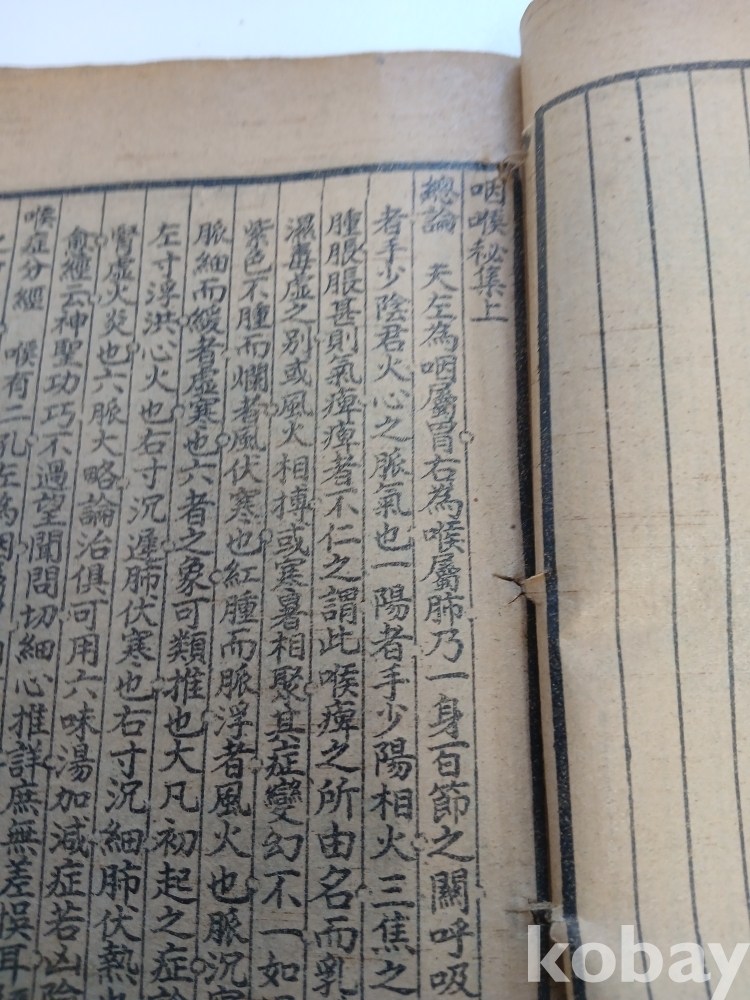 咽喉秘集上
總論　夫左為咽屬胃右為喉屬肺乃一身百節之關呼吸
者手少陰君火心之脈氣也一陽者手少陽相火三焦之
腫脹脹甚則氣痺痺者不仁之謂此喉痺之所由名而乳
濕毒虛之別或風火相搏或寒暑相聚其症變幻不一如
紫色不腫而爛者風伏寒也紅腫而脈浮者風火也脈沉
脈細而緩者虛寒也六者之象可類推也大凡初起之症
左寸浮洪心火也右寸沉遲肺伏寒也右寸沉細肺伏熱也
腎虛火炎也六脈大略論治俱可用六味湯加減症若凶險
愈經云神聖功巧不過望聞問切細心推詳庶無差悮耳
喉症分經　喉有二孔左為咽
kobay